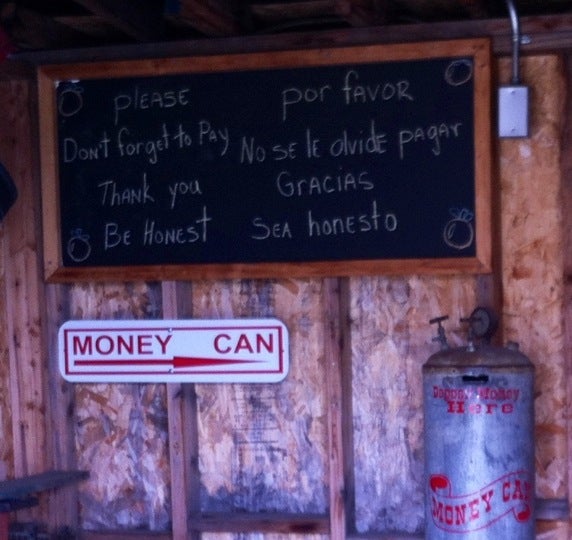 please
Don't forget to Pay
Thank you
Be Honest
por favor
No se le olvide pagar
Gracias
Sea honesto
MONEY CAN
Deposit Money
Here
MONEY CAN